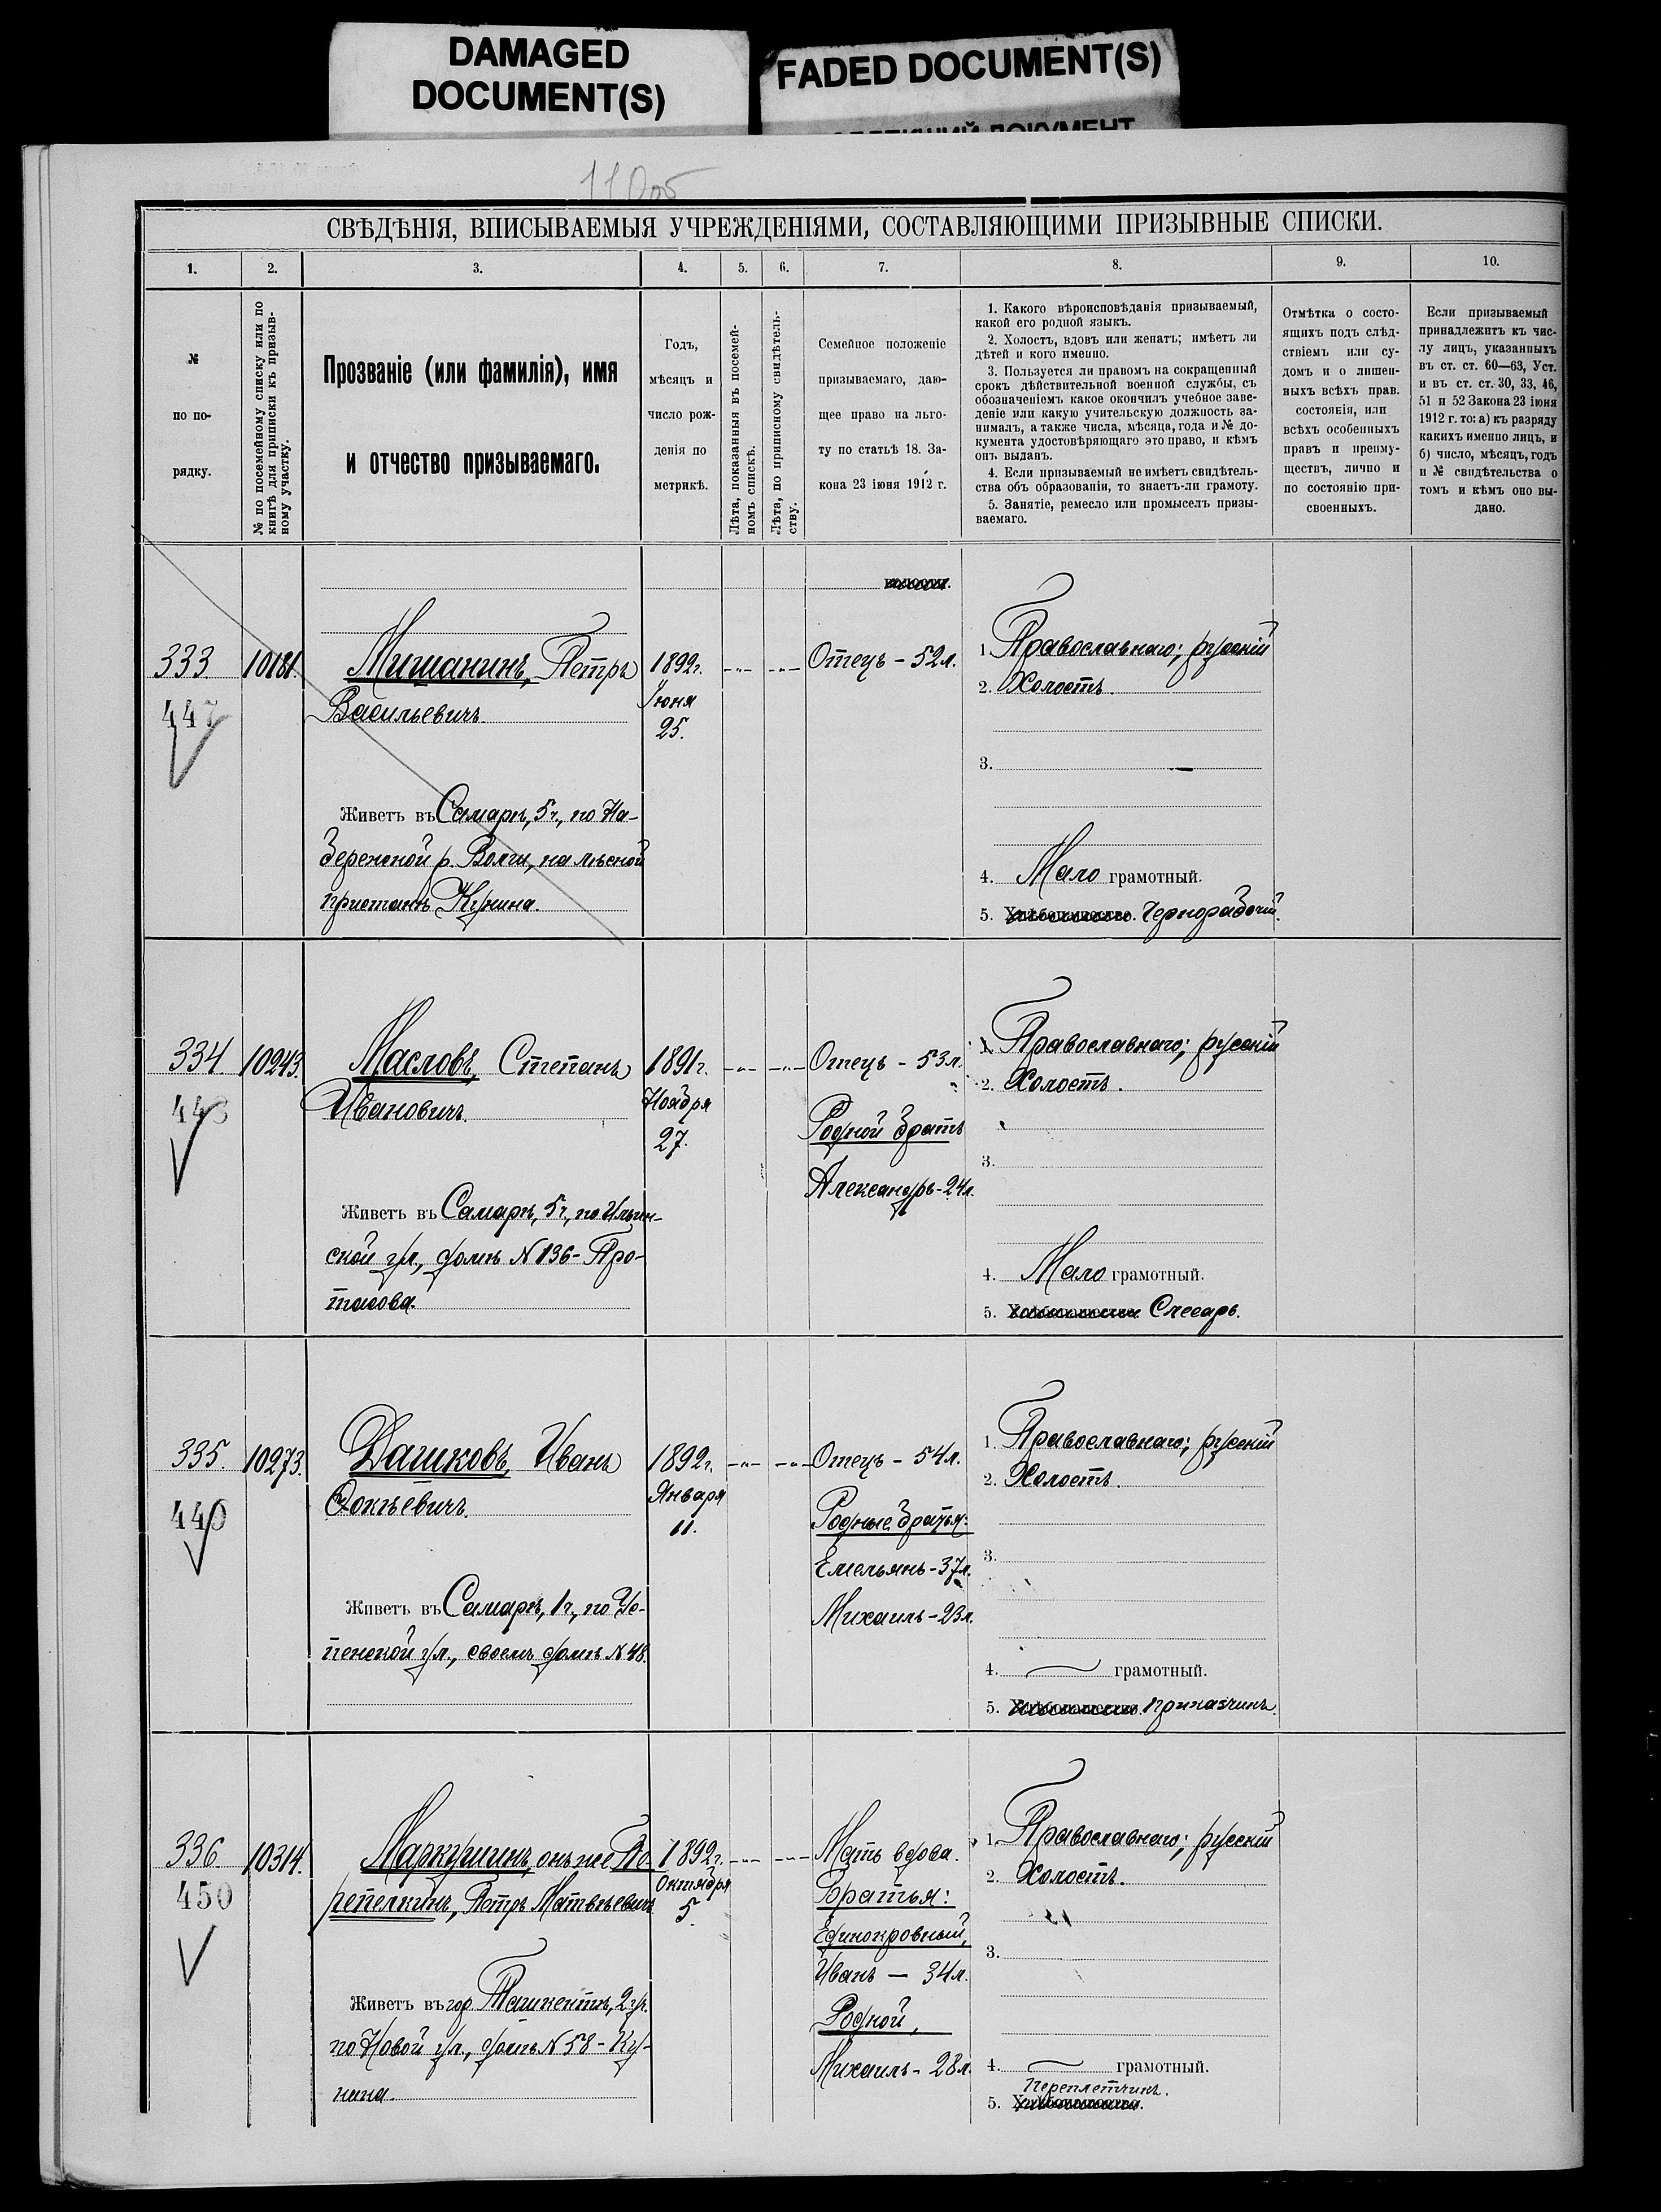 DAMAGED
DOCUMENT(S)
FADED DOCUMENT(S)
110об
СВѢДѢНІЯ, ВПИСЫВАЕМЫЯ УЧРЕЖДЕНІЯМИ, СОСТАВЛЯЮЩИМИ ПРИЗЫВНЫЕ СПИСКИ.
1. 2. 3. 4. 5. 6. 7. 8. 9. 10.
№
по по-
рядку.
№ по посемейному списку или по
книгѣ для приписки къ призыв-
ному участку.
Прозваніе (или фамилія), имя
и отчество призываемаго.
Годъ,
мѣсяцъ и
число рож-
денія по
метрикѣ.
Лѣта, показанныя въ посемей-
номъ спискѣ.
Лѣта, по приписному свидѣтель-
ству.
Семейное положеніе
призываемаго, даю-
щее право на льго-
ту по статьѣ 18. За-
кона 23 іюня 1912 г.
1. Какого вѣроисповѣданія призываемый,
какой его родной языкъ.
2. Холостъ, вдовъ или женатъ; имѣетъ ли
дѣтей и кого именно.
3. Пользуется ли правомъ на сокращенный
срокъ дѣйствительной военной службы, съ
обозначеніемъ какое окончилъ учебное заве-
деніе или какую учительскую должность за-
нималъ, а также числа, мѣсяца, года и № до-
кумента удостовѣряющаго это право, и кѣмъ
онъ выданъ.
4. Если призываемый не имѣетъ свидѣтель-
ства объ образованіи, то знаетъ-ли грамоту.
5. Занятіе, ремесло или промыселъ призы-
ваемаго.
Отмѣтка о состо-
ящихъ подъ слѣд-
ствіемъ или су-
домъ и о лишен-
ныхъ всѣхъ прав.
состоянія, или
всѣхъ особенныхъ
правъ и преиму-
ществъ, лично и
по состоянію при-
своенныхъ.
Если призываемый
принадлежитъ къ чис-
лу лицъ, указанныхъ
въ ст. ст. 60—63, Уст.
и въ ст. ст. 30, 33, 46,
51 и 52 Закона 23 іюня
1912 г. то: а) къ разряду
какихъ именно лицъ, и
б) число, мѣсяцъ, годъ
и № свидѣтельства о
томъ и кѣмъ оно вы-
дано.
333
447
10181.
Мишанинъ, Петръ
Васильевичъ
Живетъ въ Самарѣ, 5ч., по На-
бережной р. Волги, на лѣсной
пристанѣ Кунина.
1892г.
Іюня
25.
Отецъ - 52л.
1. Православнаго; русскій
2. Холостъ.
3. —
4. Мало грамотный.
5. Хлѣбопашество. Чернорабочій.
334
448
10243.
Масловъ, Степанъ
Ивановичъ.
Живетъ въ Самарѣ, 5ч., по Ильин-
ской ул., домѣ № 136 - Про-
тасова.
1891г.
Ноября
27.
Отецъ - 53л.
Родной братъ
Александръ - 24л.
1. Православнаго; русскій
2. Холостъ.
3.
4. Мало грамотный.
5. Хлѣбопашество. Слесарь.
335.
449
10273.
Дашковъ, Иванъ
Фокѣевичъ.
Живетъ въ Самарѣ, 1ч., по Ус-
пенской ул., своемъ домѣ № 48.
1892г.
Января
11.
Отецъ - 54л.
Родные братья:
Емельянъ - 37л.
Михаилъ - 23л.
1. Православнаго; русскій
2. Холостъ.
3.
4. грамотный.
5. Хлѣбопашество. Приказчикъ.
336.
450
10314.
Маркушинъ, онъ же По-
репелкинъ, Петръ Матвѣевичъ
Живетъ въ гор. Ташкентѣ, 2 ул.
по Новой ул., домъ № 58 - Ку-
нина.
1892г.
Октября
5.
Мать вдова.
Братья:
Единокровный,
Иванъ — 34л.
Родной,
Михаилъ - 28л.
1. Православнаго; русскій
2. Холостъ.
3.
4. грамотный.
Переплетчикъ.
5. Хлѣбопашество.